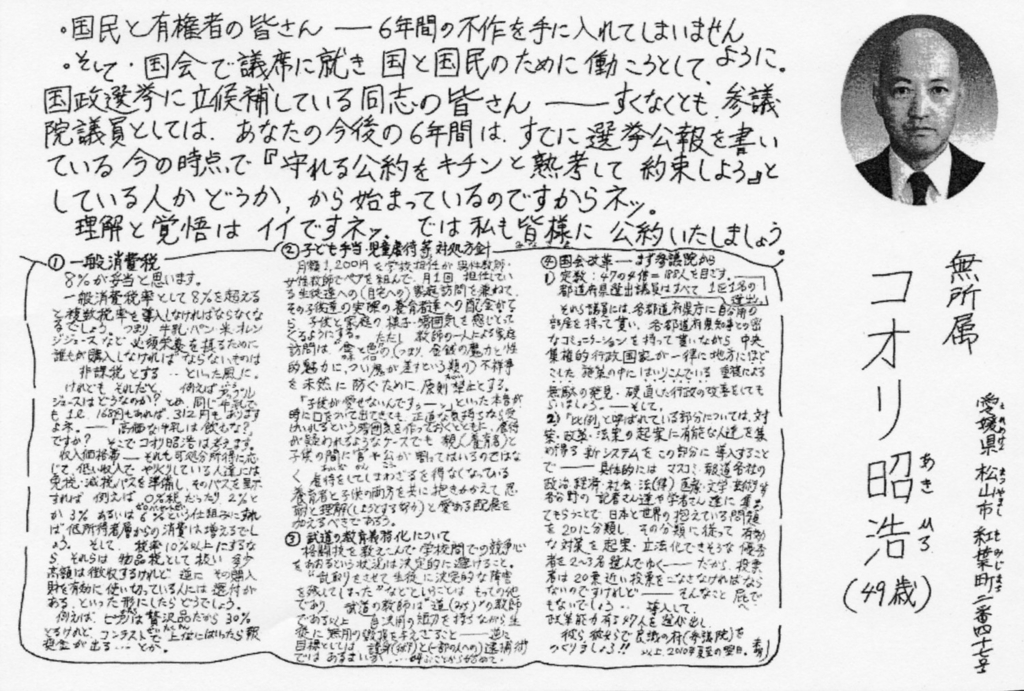 ・国民と有権者の皆さん ―― 6年間の不作を手に入れてしまいません
ように。
・そして・国会で議席に就き 国と国民のために働こうとして、
国政選挙に立候補している同志の皆さん ―― すくなくとも、参議
院議員としては、あなたの今後の6年間は、すでに選挙公報を書い
ている今の時点で『守れる公約をキチンと熟考して約束しよう』と
している人かどうか、から始まっているのですからネッ。
理解と覚悟はイイですネッ。では私も皆様に公約いたしましょう。
① 一般消費税
8%が妥当と思います。
一般消費税率として8%を超える
と複数税率を導入しなければならなくな
るでしょう。つまり、牛乳・パン・米・オレン
ジジュースなど必須栄養を摂るために
誰もが購入しなければならないものは
非課税とする‥といった風に。
けれども それだと、例えばアップル
ジュースはどうなのか?とか、同じ牛乳で
も1ℓ 168円もあれば、312円もあります
よネ。――「高価な牛乳は飲むな?」
ですか? そこでコオリ昭浩は考えます。
収入価格帯――それも可処分所得に応
じて、低い収入で
免税・減税パスを準備し、そのパスを呈示
すれば 例えば 0%税だったり 2%と
か 3% あるいは 6%という仕組みにすれ
ば低所得者層からの消費は増えるでし
ょう。 そして、税率10%以上にするな
ら、それらは物品税として扱い
高額は徴収するけれど 逆に その購入
財を有効に使い切っている人には還付が
ある、といった形にしたらどうでしょう。
例えば、ピアノは贅沢品だから30%
とるけれど、コンテストで上位にはいったら報
奨金が出る…とか。
② 子ども手当・児童虐待等対処方針
月額1,200円を学校担任が男性教師・
女性教師でペアを組んで 月1回 担任してい
る生徒達への(自宅への)家庭訪問を兼ねて、
その子供達の実際の養育者達への配金がて
ら 子供と家庭の様子・雰囲気を感じとって
くるようにする。 ただし 教師の一人による家庭
訪問は
的魅力に、つい魔が差すという類の)不祥事
を未然に防ぐために、原則禁止とする。
「子供が愛せないんですぅ～」といった本音が
時に口をついて出てきても 正直な気持ちなら受
けいれるという雰囲気を作っておくとともに、虐待
が疑われるようなケースでも 親(養育者)と
子供の間に官や公が
く 虐待をしてしまわざるを得なくなっている
養育者と子供の両方を共に抱きかかえて 忍
耐と理解(しようとする努力)と愛ある配慮を
加えるべきであろう。
③ 武道の教育義務化について
格闘技を教えこんで 学校間での競争心
をあおるという状況は決定的に避けること。
乱取りをさせて生徒に決定的な障害
を残してしまった などということは もっての他
であり、 武道の教師は“道(みち)”の教師
である以上
徒に無用の
目標としては 護身(だけ)と(一部の人への)逮捕術
ではあるまいか…
④ 国会改革――まず参議院から
1) 定数:47の4倍=188人を目ざす。
都道府県選出議員はすべて 1区1名の
選出。
それら議員には、各都道府県庁に自分用の
部屋を持って貰い、各都道府県知事との密
なコミュニケーションを持って貰いながら 中央
集権的行政国家が一律に地方にほど
こした 施策の中にはいりこんでいる
無駄の発見・硬直した行政の改善をしても
らいましょう。――そして、
2)「比例」と呼ばれている部分については、対
策・政策・法案の起案に有能な人達を集
め得る 新システムをこの部分に導入すること
で―― 具体的には マスコミ・報道各社の
政治・経済・社会・法(律)・医療・文学・芸術
各分野の 記者さん達や学者さん達に集まっ
てもらうことで 日本と世界の抱えている問題
を20に分類し その分類に従って 有効
な対策を起案・立法化できそうな優秀
者を2～3名選んでゆく――だから、投票
者は20票近い投票をこなさなければなら
ないのですけれど―― そんなこと 屁で
もないでしょう。 導入して、
政策能力有る47人を選び出し、
彼ら・彼女らで良識の府(参議院)を
つくりましょう!! 以上、2010年夏至の翌日。
無所属
コオリ昭浩
あき ひろ
(49歳)
愛媛県 松山市 紅葉町二番四十七号
えひめけん まつやまし もみじまち